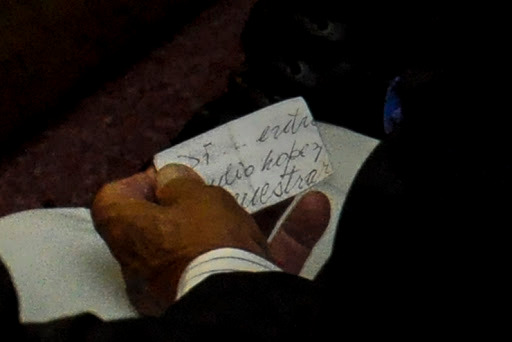 Si... entr
udio Lopez
uestrar